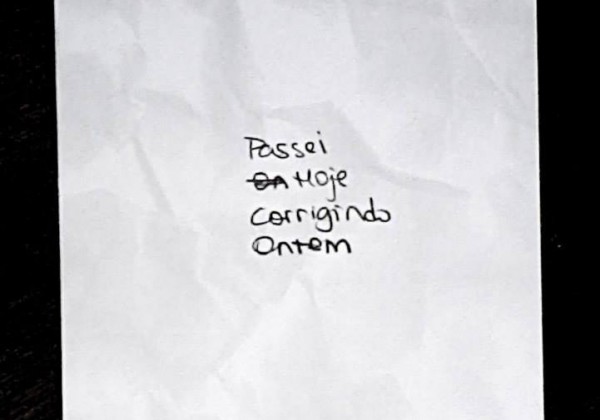 Passei
On Hoje
corrigindo
Ontem